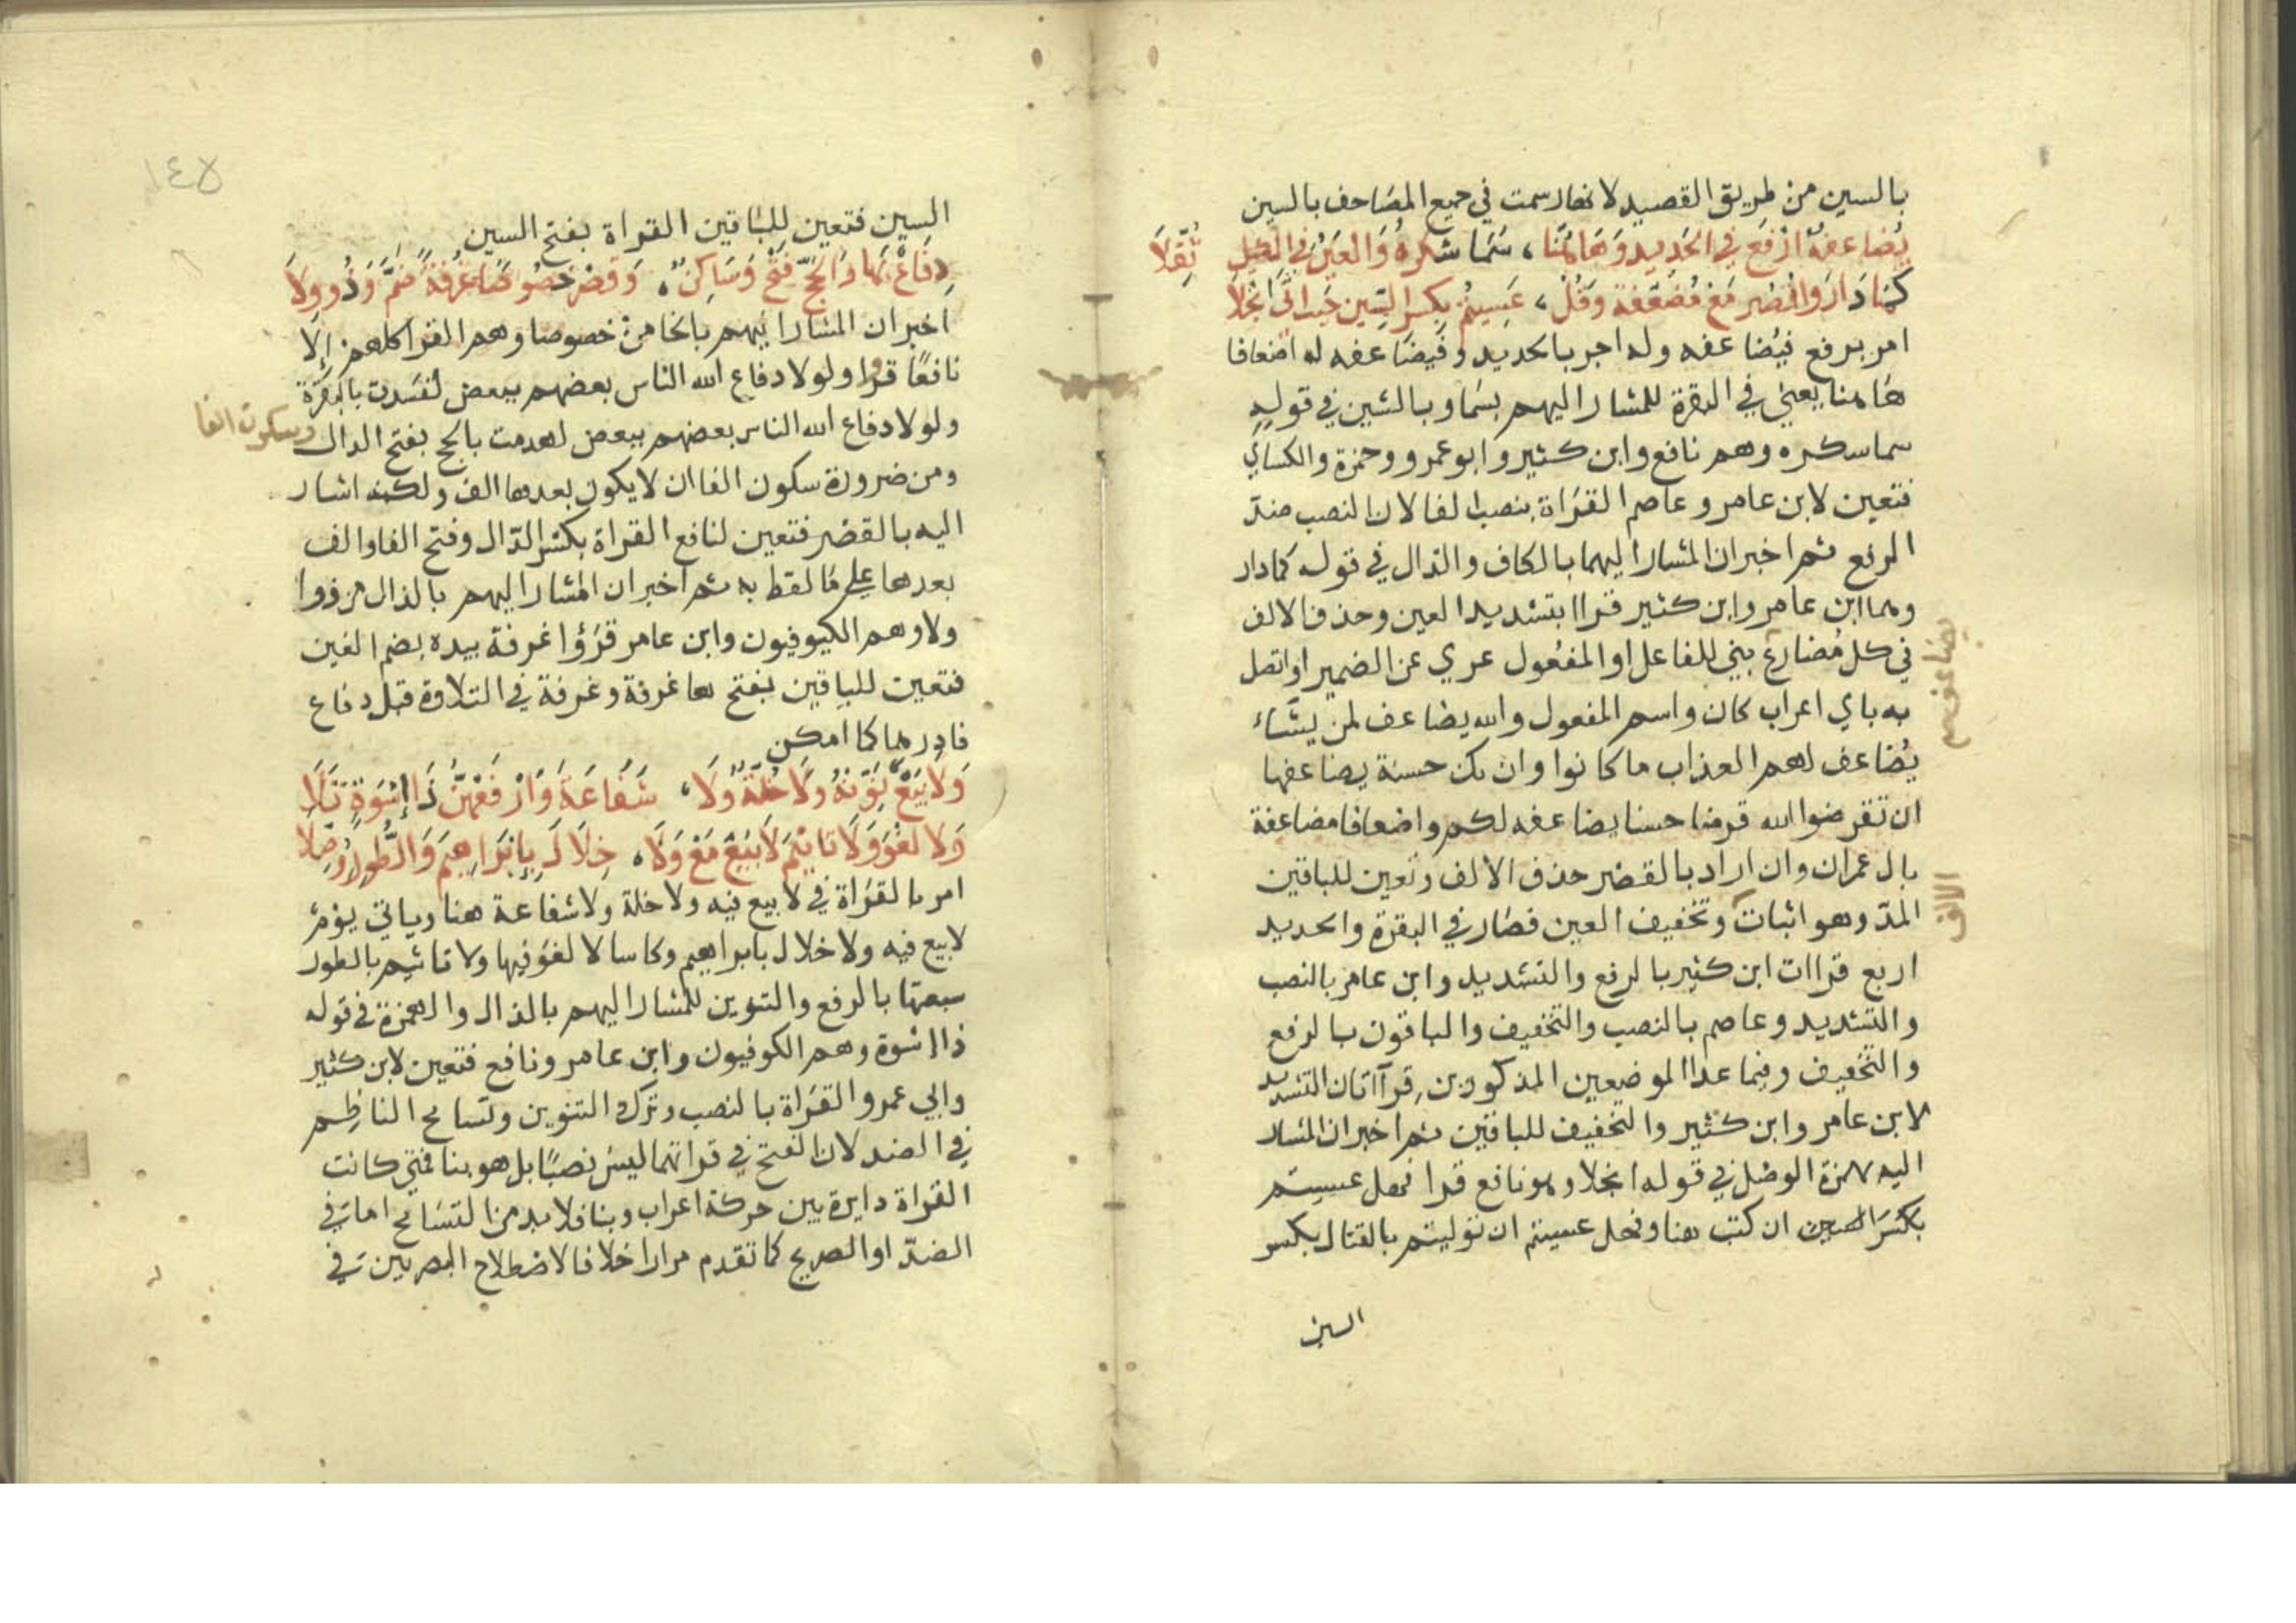 بالسين من طريق القصيد لانها رسمت في جميع المصاحف بالسين
يُضَاعفهُ ارْفَع في الحَديد وَهَاهُنَا، سَمَا شكرهُ وَالعَيْنُ في الكل ثُقِّلَا
كَمَا دَارَ وَاقْصُر مَعْ مُضَعَّفة وَقُلْ، عَسِيتُمْ بِكسرالسِّين حَيث اتَى انْجَلَا
امر برفع فيُضاعفه وله اجر بالحديد وفيضَاعفه له اضعافا
هَاهنا يعني في البقرة للمشار اليهم بسَما وبالشين في قولِهِ
سما شكره وهم نافع وابن كثير وابو عمرو وحمزة والكساي
فتعين لابن عامر وعاصم القرَاة بنصب الفا لان النصب ضدّ
الرفع ثم اخبر ان المشار اليهما بالكاف والدال في قوله كما دار
وهما ابن عامر وابن كثير قراا بتشديد العين وحذف الالف
في كل مُضارع بني للفاعل او المفعُول عري عن الضمير او اتصل
به باي اعراب كان واسم المفعول والله يضاعف لمن يشَاء
يُضاعف لهم العذاب ما كانوا وان تك حسنة يضاعفها
ان تقرضوا الله قرضا حسنا يضاعفه لكم واضعافا مضاعفة
بال عمران وان اراد بالقصْر حذف الالف وتعين للباقين
المدّ وهو اثبات وتخفيف العين فصَار في البقرة والحديد
اربع قراات ابن كثير بالرفع والتشديد وابن عامر بالنصب
والتشديد وعاصم بالنصب والتخفيف والباقون بالرفع
والتخفيف وفيما عدا الموضعين المذكورين قراآتان التشديد
لابن عامر وابن كثير والتخفيف للباقين ثم اخبر ان المشار
اليه بهمزة الوصْل في قوله انجلا وهو نافع قرا فهل عسيتم
بكسَر السين ان كتب هنا وفهل عسيتم ان توليتم بالقتال بكسر
السين
يضاعف
الالف
١٤٧
السين فتعين للبَاقين القراة بفتح السين
دِفَاعُ بهَا وَالحَجّ فَتْحٌ وَسَاكِنٌ، وَقَصْرٌ خصُوصًا غُرْفَةً ضَمَّ ذُو وِلَا
اخبر ان المشار اليهم بالخا من خصوصا وهم القرا كلهم إلا
نافعًا قرؤا ولولا دفاع الله الناس بعضهم ببعض لفسَدت بالبقرة
ولولا دفاع الله الناس بعضهم ببعض لهدمت بالحج بفتح الدال وسكون الفا
ومن ضرورة سكون الفا ان لا يكون بعدها الف ولكنه اشار
اليه بالقصْر فتعين لنافع القراة بكسْر الدّال وفتح الفا والف
بعدها علي مَا لفظ به ثم اخبر ان المشار اليهم بالذال من ذوا
ولا وهم الكيوفيون وابن عامر قرَؤا غرفة بيده بضم الغين
فتعين للباقين بفتحها غرفة وغرفة في التلاوة قبل دفاع
فادرهما كما امكن
وَلَا بَيْعٌ نَوِّنْهُ وَلَا خُلَّةٌ وَلَا، شَفَاعَة وَارْفَعْهُنَّ ذَا إسْوَةٍ تَلَا
وَلَا لغْوَ وَلَا تَاثيْمَ لَا بَيْعَ مَعْ وَلَا، خِلَالَ بِإبْرَاهِيمَ وَالطُّور وُصِّلَا
امر بالقرَاة في لا بيع فيه ولا خلة ولا شفاعة هنا وياتي يؤم
لا بيع فيه ولا خلال بابراهيم وكاسا لا لغو فيها ولا تاثيم بالطور
سبعتها بالرفع والتنوين للمشار اليهم بالذال والهمزة في قوله
ذا اسْوة وهم الكوفيون وابن عامر ونافع فتعين لابن كثير
وابي عمرو القرَاة بالنصب وترك التنوين وتسَامح الناظِم
في الضد لان الفتح في قراتهما ليس نصبًا بل هو بنا فمتي كانت
القراة دايرة بين حركة اعراب وبنا فلا بد من التسَامح اما في
الضدّ او الصريح كما تقدم مرارا خلافا لاصْطلاح البصريين في